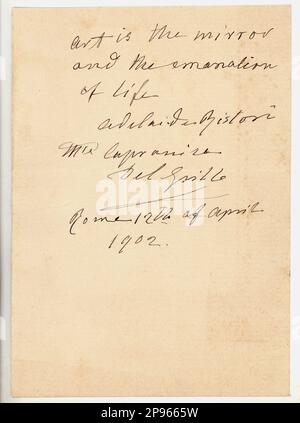 art is the mirror
and the emanation
of life
Adelaide Ristori
Mse Capranica
Del Grillo
Rome 12th of April
1902.
alamy
Image ID: 2P9665W
www.alamy.com